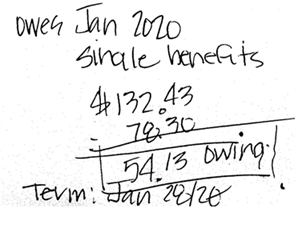 owes Jan 2020
single benefits
$132.43
- 78.30
54.13 owing
Term: Jan 28/20